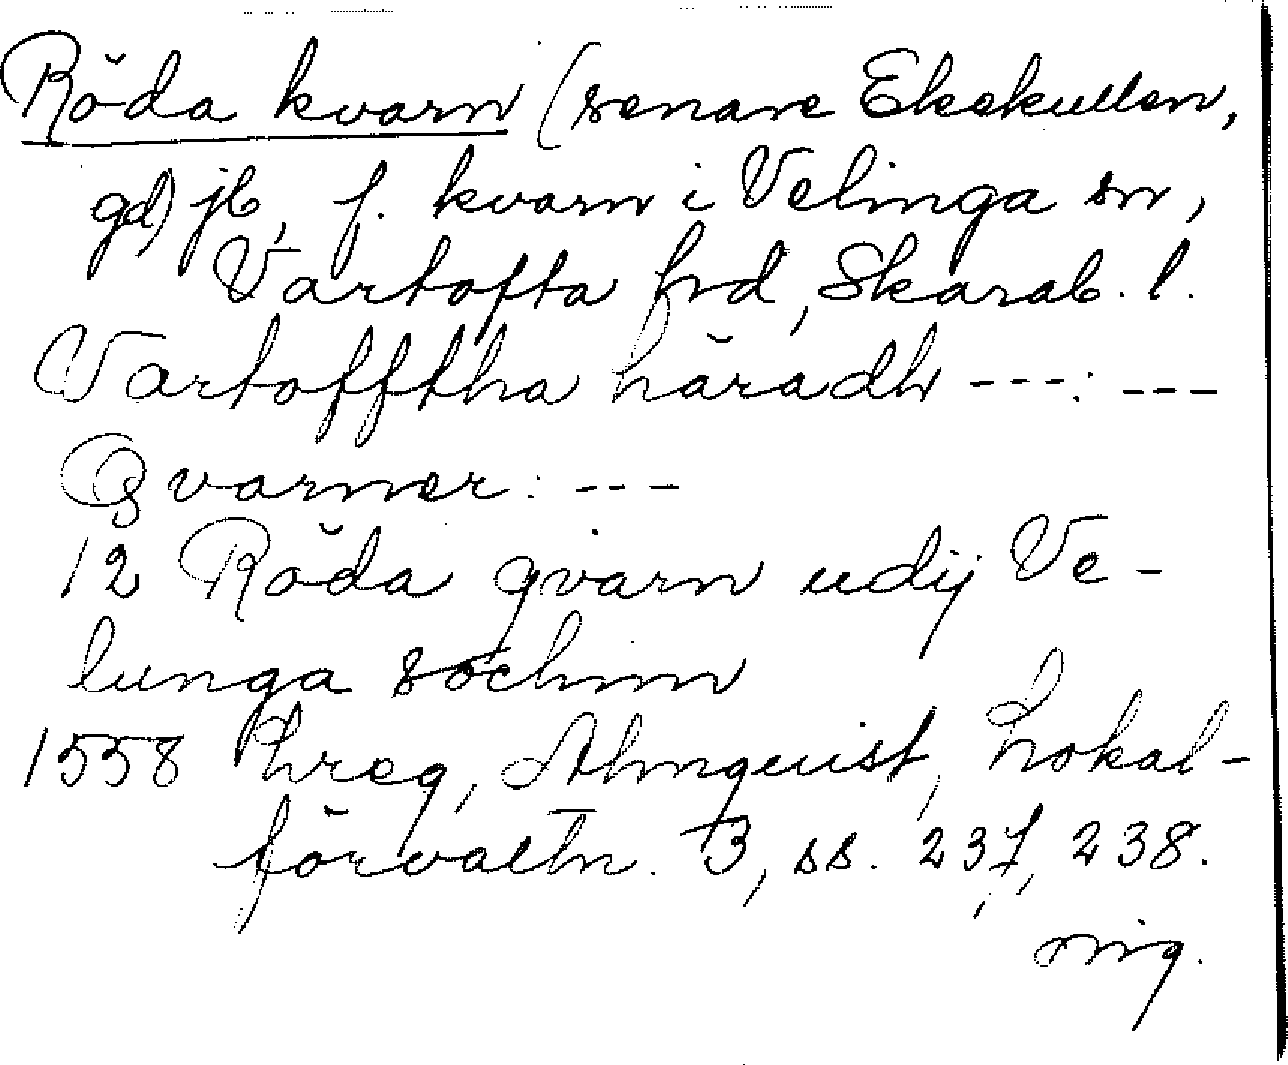 Röda kvarn (senare Ekekullen,
gd) jb, f. kvarn i Velinga sn,
Vartofta hrd, Skarab. l.
Vartofftha häradh ---: ---
Qvarner: ---
12 Röda qvarn udij Ve-
lunga sochnn
1558 hreg, Almquist, Lokal-
förvaltn. 3, ss. 237, 238.